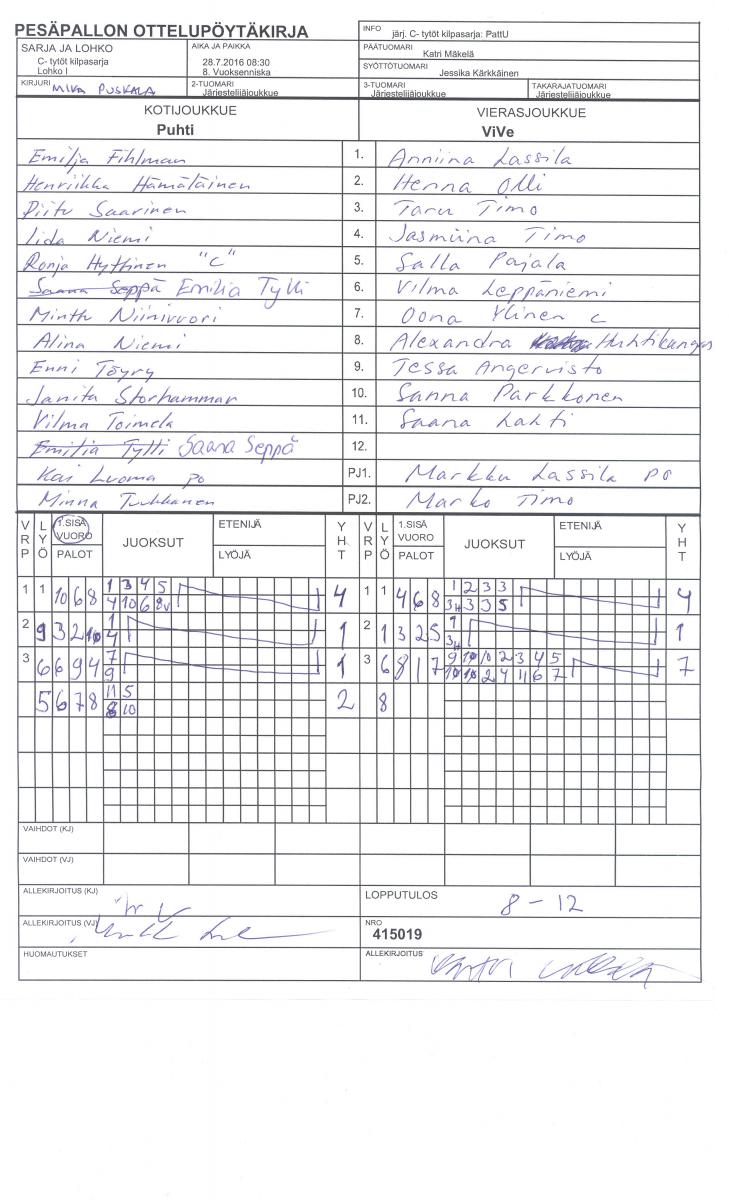 PESÄPALLON OTTELUPÖYTÄKIRJA
INFO järj. C- tytöt kilpasarja: PattU
SARJA JA LOHKO
C- tytöt kilpasarja
Lohko I
AIKA JA PAIKKA
28.7.2016 08:30
8. Vuoksenniska
PÄÄTUOMARI
Katri Mäkelä
SYÖTTÖTUOMARI
Jessika Kärkkäinen
KIRJURI MIKA PUSKALA
2-TUOMARI
Järjestelijäjoukkue
3-TUOMARI
Järjestelijäjoukkue
TAKARAJATUOMARI
Järjestelijäjoukkue
KOTIJOUKKUE
Puhti
VIERASJOUKKUE
ViVe
Emilja Fihlman 1. Anniina Lassila
Henriikka Hämäläinen 2. Henna Olli
Piitu Saarinen 3. Taru Timo
Iida Niemi 4. Jasmiina Timo
Ronja Hyttinen "C" 5. Salla Pajala
Saana Seppä Emilia Tylli 6. Vilma Leppäniemi
Minttu Niinivuori 7. Oona Ylinen C
Alina Niemi 8. Alexandra Huhtikangas
Enni Töyry 9. Tessa Angervisto
Janita Storhammar 10. Sanna Parkkonen
Vilma Toimela 11. Saana Lahti
Emilia Tytti Saana Seppä 12.
Kai Luoma po PJ1. Markku Lassila po
Minna Tuukkanen PJ2. Marko Timo
VRP LYÖ 1.SISÄ VUORO PALOT JUOKSUT ETENIJÄ LYÖJÄ YHT VRP LYÖ 1.SISÄ VUORO PALOT JUOKSUT ETENIJÄ LYÖJÄ YHT
1 1 10 6 8 1 3 4 5 4 1 1 4 6 8 1 2 3 3 4
4 10 6 8v 3H 3 3 5
2 9 3 2 10 1 1 2 1 3 2 5 1 1
4 3H
3 6 6 9 4 7 1 3 6 8 1 7 9 10 10 2 3 4 5 7
9 10 10 2 4 11 6 7
5 6 7 8 11 5 2 8
8 10
VAIHDOT (KJ)
VAIHDOT (VJ)
ALLEKIRJOITUS (KJ)
LOPPUTULOS 8 - 12
ALLEKIRJOITUS (VJ)
NRO
415019
HUOMAUTUKSET
ALLEKIRJOITUS